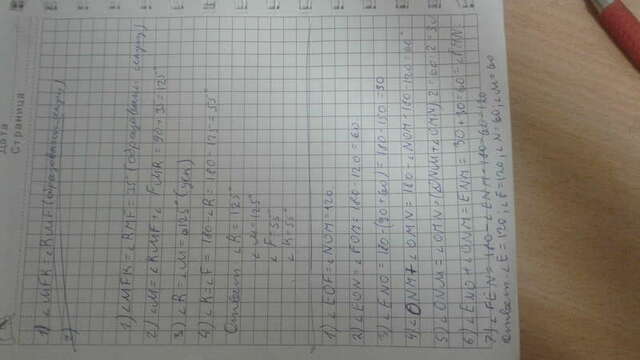 Дата
Страница
1) ∠MFK = ∠RMF (образовано секущ)
2)
1) ∠MFK = ∠RMF = 35° (образовано секущ)
2) ∠M = ∠RMF + ∠FMR = 90 + 35 = 125°
3) ∠R = ∠M = 125° (усл)
4) ∠K = ∠F = 180 - ∠R = 180 - 125 = 55°
Ответ: ∠R = 125°
∠M = 125°
∠F = 55°
∠K = 55°
1) ∠EOF = ∠NOM = 120
2) ∠EON = ∠FOM = 180 - 120 = 60
3) ∠ENO = 180 - (90 + 60) = 180 - 150 = 30
4) ∠ONM + ∠OMN = 180 - ∠NOM = 180 - 120 = 60°
5) ∠ONM = ∠OMN = (∠ONM + ∠OMN) : 2 = 60 : 2 = 30
6) ∠ENO + ∠ONM = ENM = 30 + 30 = 60 = ∠FMN
7) ∠FEN = 180 - ∠ENM = 180 - 60 = 120
Ответ: ∠E = 120; ∠F = 120; ∠N = 60; ∠M = 60